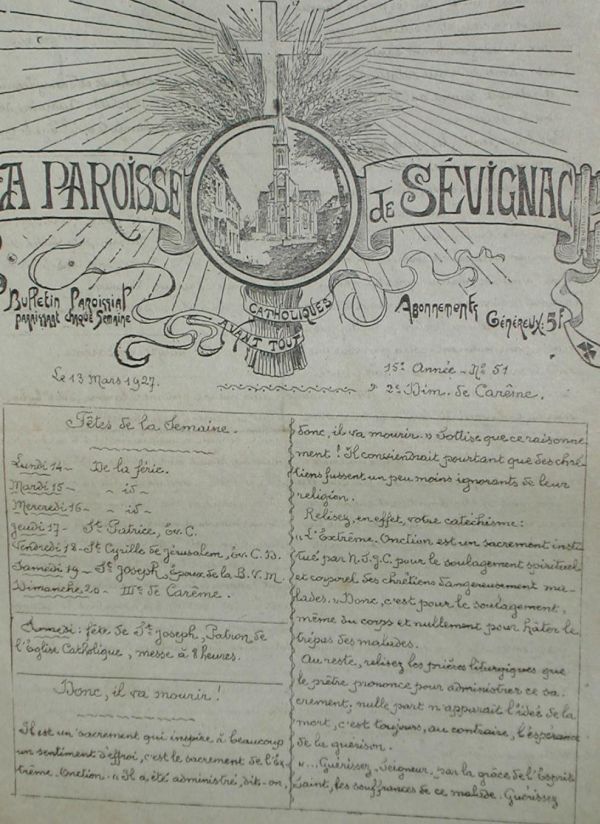 A PAROISSE de SÉVIGNAC
Bulletin Paroissial
paraissant chaque Semaine
CATHOLIQUES
AVANT TOUT
Abonnements
Généreux: 5F
Le 13 Mars 1927.
15e Année - No 51
2e Dim. de Carême.
Fêtes de la Semaine.
Lundi 14 - De la férie.
Mardi 15 - " id -
Mercredi 16 - " id -
Jeudi 17 - St Patrice, év. C.
Vendredi 18 - St Cyrille de Jérusalem, év. C. D.
Samedi 19 - St Joseph, Époux de la B. V. M.
Dimanche 20 - IIIe de Carême.
Samedi: fête de St Joseph, Patron de
l'Église Catholique, messe à 8 heures.
Donc, il va mourir!
Il est un sacrement qui inspire à beaucoup
un sentiment d'effroi, c'est le sacrement de l'Ex-
trême-Onction. « Il a été administré, dit-on,
donc, il va mourir. » Sottise que ce raisonne-
ment! Il conviendrait pourtant que des chré-
tiens fussent un peu moins ignorants de leur
religion.
Relisez, en effet, votre catéchisme:
« L'Extrême-Onction est un sacrement insti-
tué par N.S.J.C. pour le soulagement spirituel
et corporel des chrétiens dangereusement ma-
lades. » Donc, c'est pour le soulagement,
même du corps et nullement pour hâter le
trépas des malades.
Au reste, relisez les prières liturgiques que
le prêtre prononce pour administrer ce sa-
crement, nulle part n'apparaît l'idée de la
mort, c'est toujours, au contraire, l'espérance
de la guérison.
«... Guérissez, Seigneur, par la grâce de l'Esprit
Saint, les souffrances de ce malade. Guérissez